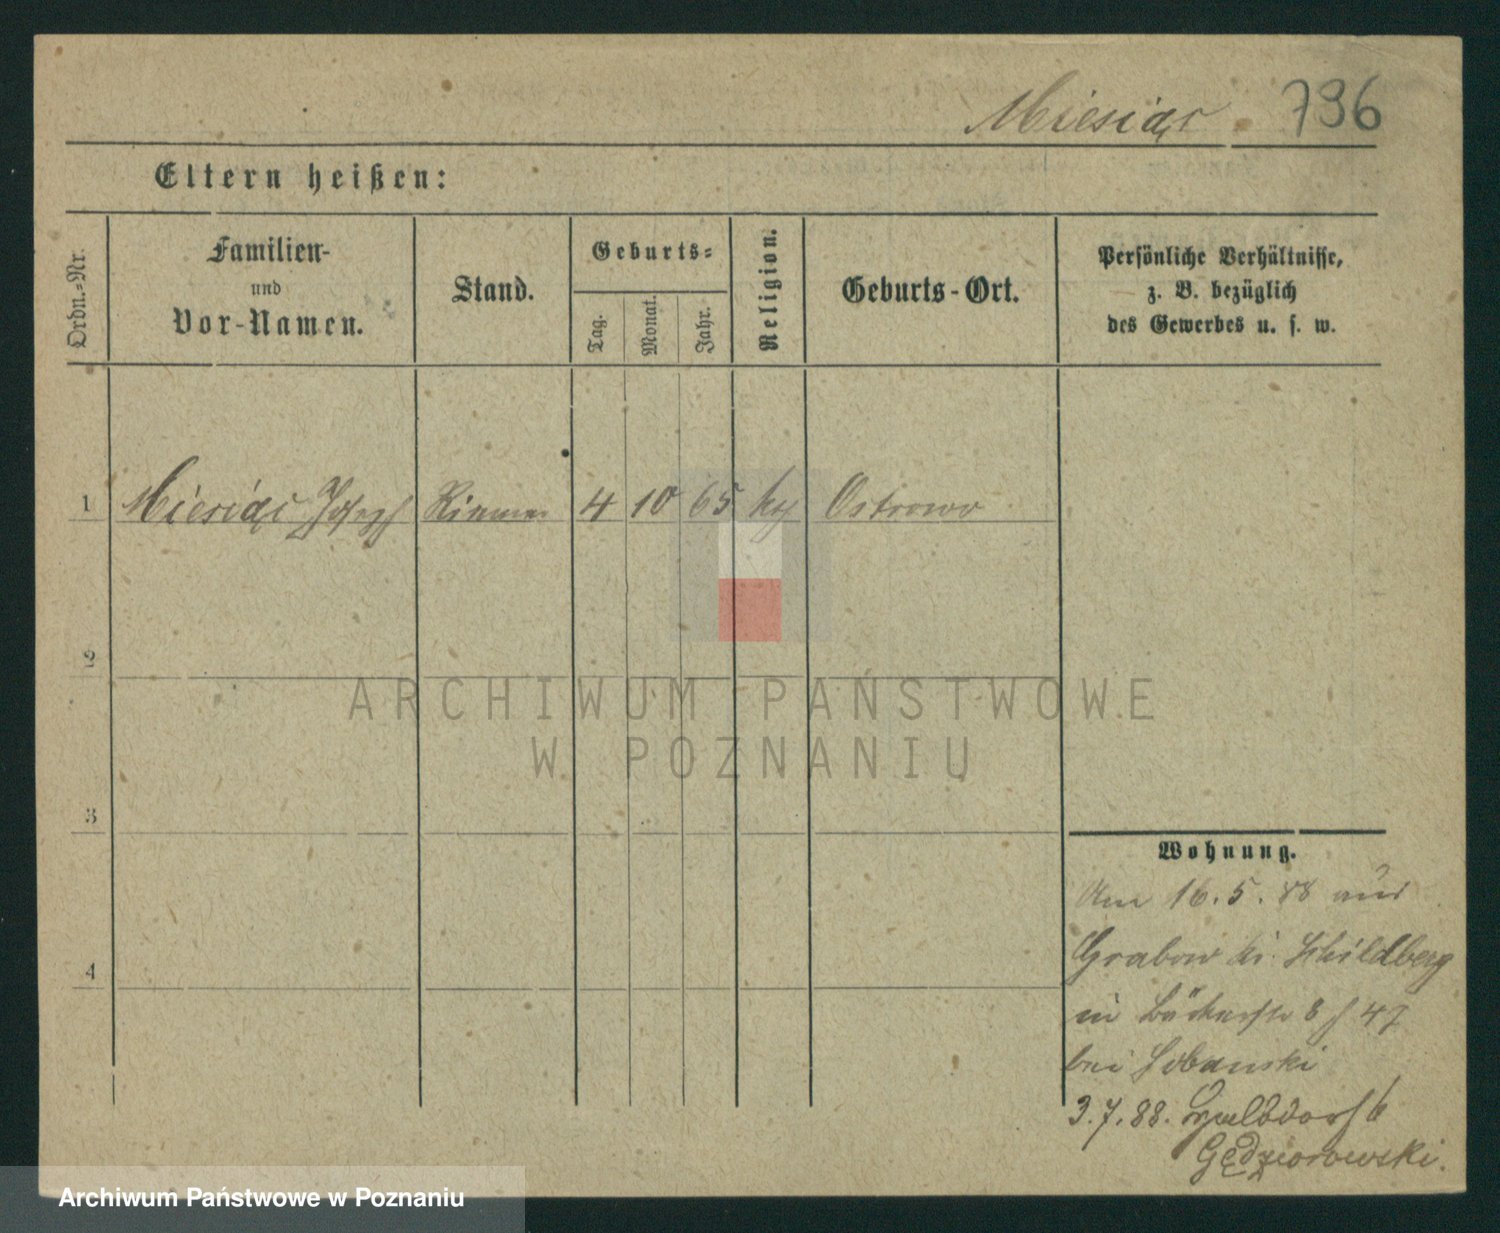 Miesiąc 736
Eltern heißen:
Ordn.-Nr.
Familien-
und
Vor-Namen.
Stand.
Geburts-
Tag.
Monat.
Jahr.
Religion.
Geburts-Ort.
Persönliche Verhältnisse,
z. B. bezüglich
des Gewerbes u. s. w.
1 Miesiąc Joseph Riemer 4 10 65 Ostrowo
2
3
4
Wohnung.
16.5.88 aus
Grabow Schildberg
in Bäckerstr 8 47
bei
3.7.88.
Gędziorowski.
ARCHIWUM PAŃSTWOWE
W POZNANIU
Archiwum Państwowe w Poznaniu